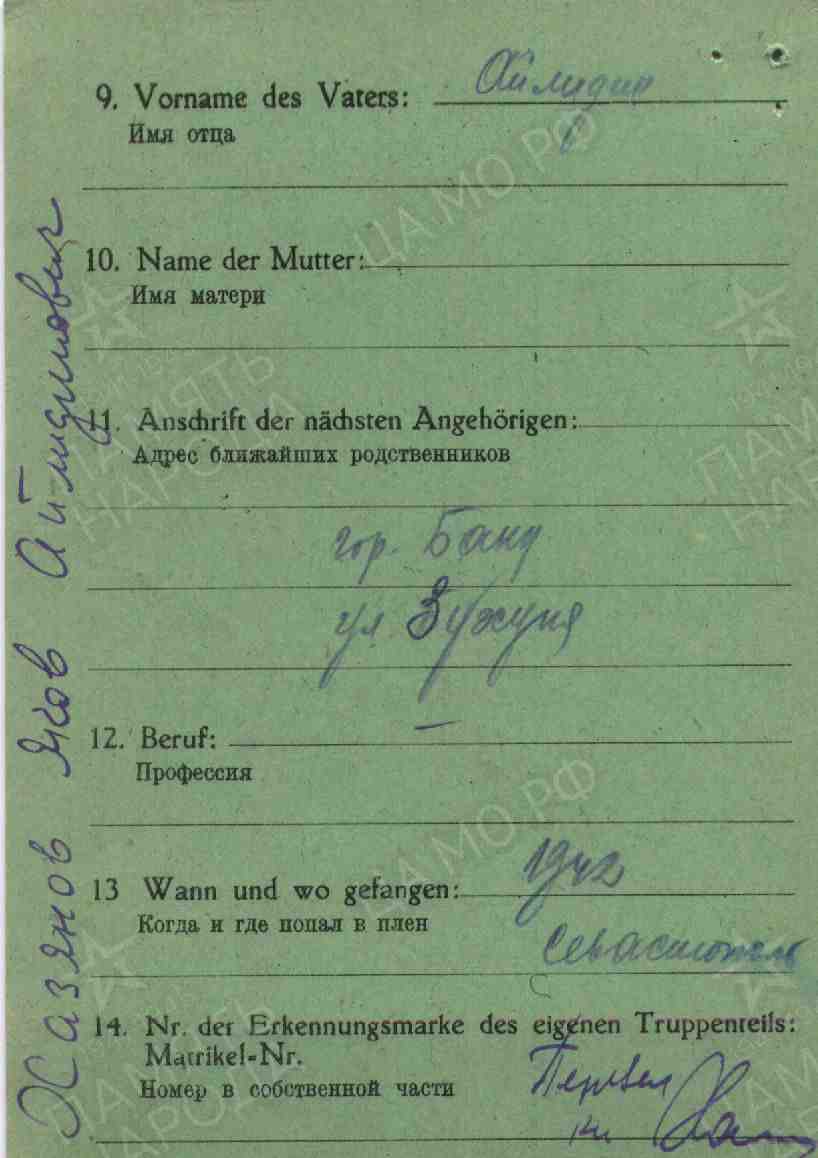 9. Vorname des Vaters: Айлидин
Имя отца
10. Name der Mutter:
Имя матери
11. Anschrift der nächsten Angehörigen:
Адрес ближайших родственников
гор. Баку
ул. Зухуня
12. Beruf: —
Профессия
13 Wann und wo gefangen: 1942
Когда и где попал в плен
Севастополь
14. Nr. der Erkennungsmarke des eigenen Truppenteils:
Matrikel-Nr.
Номер в собственной части
Хазянов Яков
ЦАМО.РФ
ПАМЯТЬ
НАРОДА
ЦАМО.РФ
ПАМЯТЬ
НАРОДА